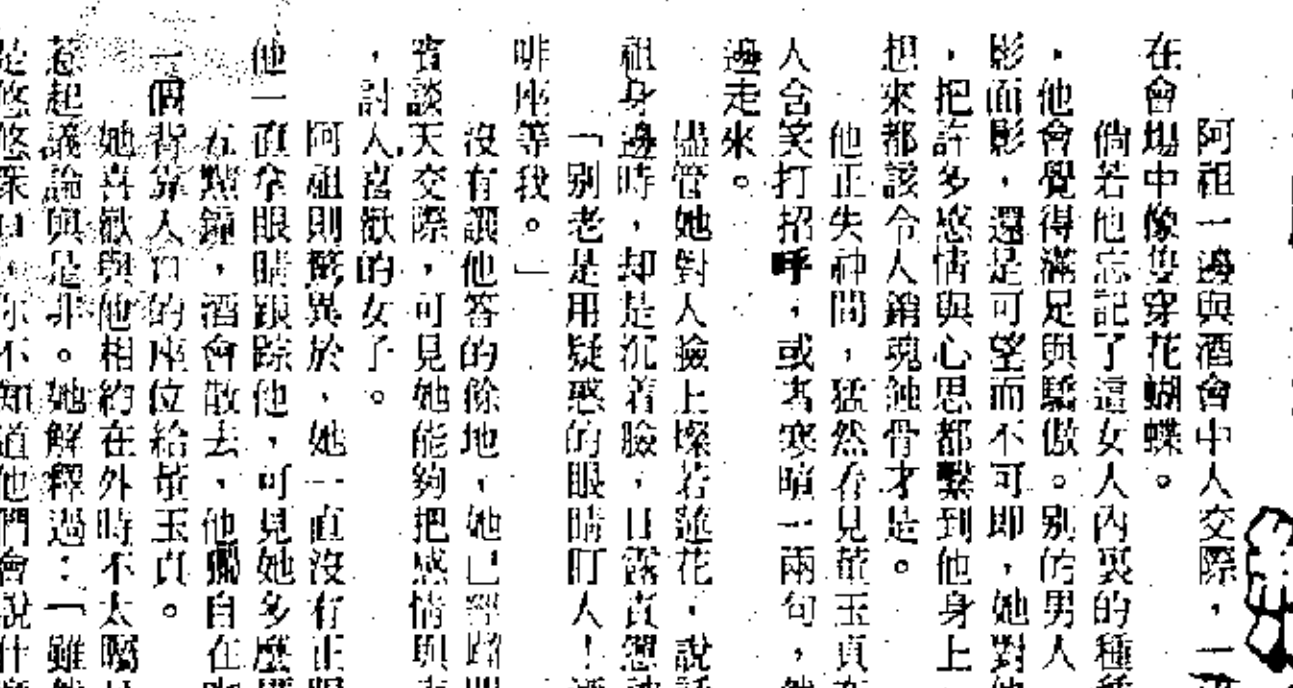 阿祖一邊與酒會中人交際，一
在會場中像隻穿花蝴蝶。
倘若他忘記了這女人內裏的種種
，他會覺得滿足與驕傲。别的男人
影面影，還是可望而不可即，她對他
，把許多感情與心思都繫到他身上，
想來都該令人銷魂蝕骨才是。
他正失神間，猛然看見董玉貞在
人含笑打招呼，或者寒暄一兩句，
邊走來。
儘管她對人臉上燦若蓮花，說話
祖身邊時，却是沉着臉，目露責
「别老是用疑惑的眼睛盯人！
啡座等我。」
沒有讓他答的餘地，她已經
賓談天交際，可見她能夠把感情與
，討人喜歡的女子。
阿祖則驚異於，她一直沒有正眼
他一直拿眼睛跟踪他，可見她多麼
五點鐘，酒會散去，他獨自在
一個背靠入口的座位給董玉貞。
她喜歡與他相約在外時不太
惹起議論與是非。她解釋過：「雖
是悠悠 你不知道他們會說什